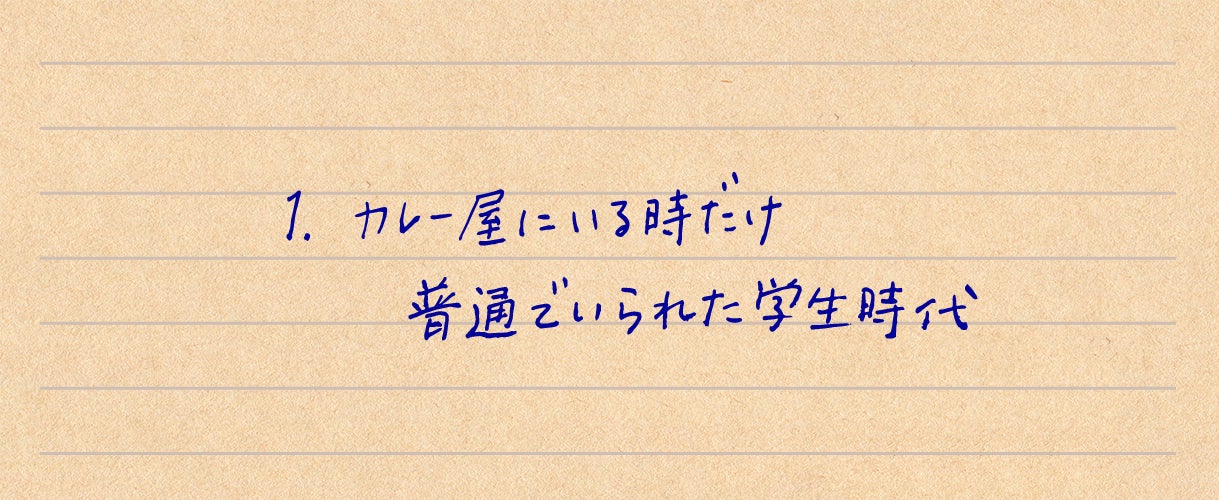 1. カレー屋にいる時だけ
普通でいられた学生時代